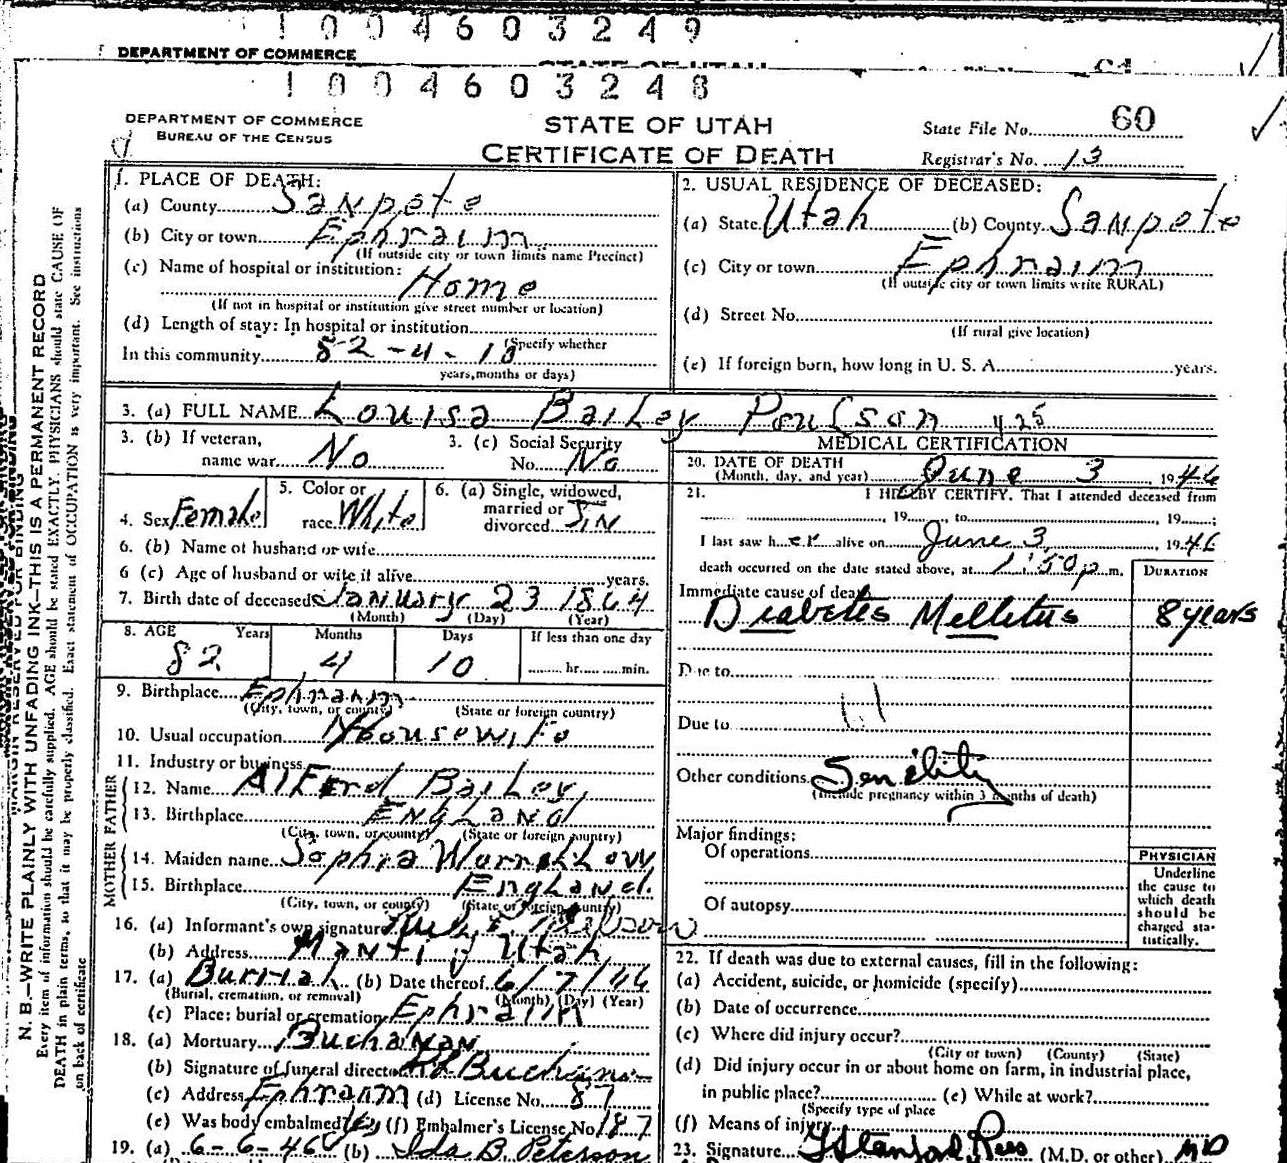 1004603249
DEPARTMENT OF COMMERCE
STATE OF UTAH
1004603248
DEPARTMENT OF COMMERCE
BUREAU OF THE CENSUS
STATE OF UTAH
CERTIFICATE OF DEATH
State File No. 60
Registrar's No. 13
1. PLACE OF DEATH:
(a) County Sanpete
(b) City or town Ephraim
(If outside city or town limits name Precinct)
(c) Name of hospital or institution:
Home
(If not in hospital or institution give street number or location)
(d) Length of stay: In hospital or institution
(Specify whether
In this community 82-4-10
years, months or days)
2. USUAL RESIDENCE OF DECEASED:
(a) State Utah (b) County Sanpete
(c) City or town Ephraim
(If outside city or town limits write RURAL)
(d) Street No.
(If rural give location)
(e) If foreign born, how long in U. S. A. years.
3. (a) FULL NAME Louisa Bailey Poulson 425
3. (b) If veteran, name war No
3. (c) Social Security No. No
4. Sex Female
5. Color or race White
6. (a) Single, widowed, married or divorced
6. (b) Name of husband or wife
6 (c) Age of husband or wife if alive years.
7. Birth date of deceased January 23 1864
(Month) (Day) (Year)
8. AGE Years Months Days If less than one day
82 4 10 hr. min.
9. Birthplace Ephraim
(City, town, or county) (State or foreign country)
10. Usual occupation Housewife
11. Industry or business
FATHER
12. Name Alferd Bailey
13. Birthplace England
(City, town, or county) (State or foreign country)
MOTHER
14. Maiden name Sophia
15. Birthplace England
(City, town, or county) (State or foreign country)
16. (a) Informant's own signature
(b) Address Manti, Utah
17. (a) Burrial (b) Date thereof 6/7/46
(Burial, cremation, or removal) (Month) (Day) (Year)
(c) Place: burial or cremation Ephraim
18. (a) Mortuary Buchanan
(b) Signature of funeral director
(c) Address Ephraim (d) License No. 87
(e) Was body embalmed (f) Embalmer's License No 187
19. (a) 6-6-46 (b) Ida B. Peterson
MEDICAL CERTIFICATION
20. DATE OF DEATH
(Month, day, and year) June 3 1946
21. I HEREBY CERTIFY, That I attended deceased from
, 19 , to , 19 ;
I last saw her alive on June 3, 1946
death occurred on the date stated above, at 1:50 p.m.
DURATION
Immediate cause of death
Diabetes Mellitus 8 years
Due to
Due to
Other conditions Senility
(Include pregnancy within 3 months of death)
Major findings:
Of operations
Of autopsy
PHYSICIAN
Underline
the cause to
which death
should be
charged sta-
tistically.
22. If death was due to external causes, fill in the following:
(a) Accident, suicide, or homicide (specify)
(b) Date of occurrence
(c) Where did injury occur?
(City or town) (County) (State)
(d) Did injury occur in or about home on farm, in industrial place,
in public place? (e) While at work?
(Specify type of place
(f) Means of injury
23. Signature (M.D. or other) MD
N. B.—WRITE PLAINLY WITH UNFADING INK—THIS IS A PERMANENT RECORD
Every item of information should be carefully supplied. AGE should be stated EXACTLY. PHYSICIANS should state CAUSE OF
DEATH in plain terms, so that it may be properly classified. Exact statement of OCCUPATION is very important. See instructions
on back of certificate